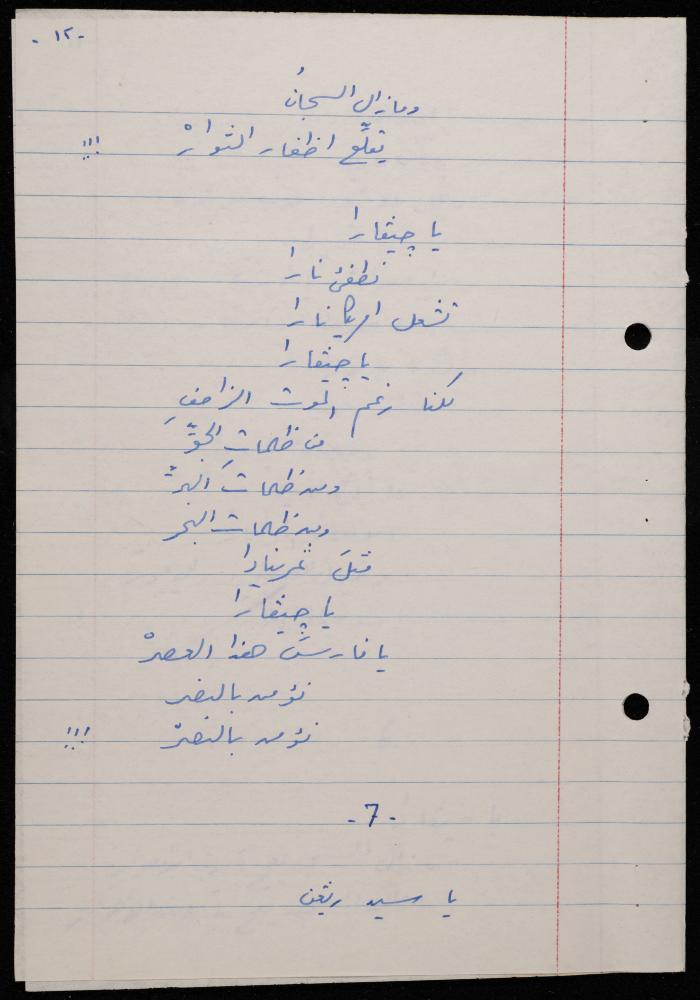 - ١٢ -
ومازال السجانُ
يقلِّع اظفار الثوارْ !!!
يا چيڤارا
نطفئ نارا
تشعل امريكا نارا
يا چيڤارا
لكنا رغم الموت الزاحفِ
من ظلماتِ الجوِّ
ومن ظلمات البرِّ
ومن ظلمات البحر
مثلَ غرينادا
يا چيڤارا
يا فارسَ هذا العصرْ
نؤمن بالنصر
نؤمن بالنصرْ !!!
- 7 -
يا سيد ريغن